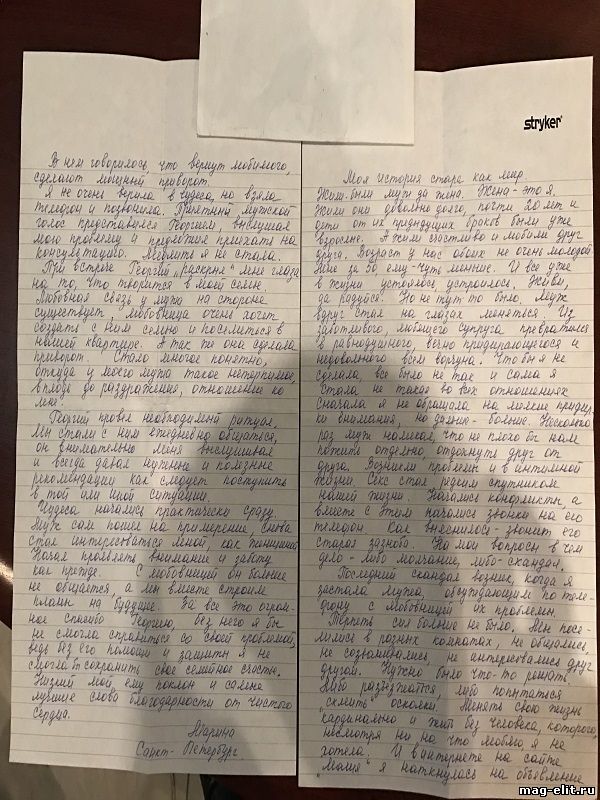 stryker
Моя история стара как мир.
Жили-были муж да жена. Жена - это я.
Жили они довольно долго, почти 20 лет и
дети от их предыдущих браков были уже
взрослые. А жили счастливо и любили друг
друга. Возраст у нас обоих не очень молодой.
Мне за 50, ему - чуть меньше. И все уже
в жизни устоялось, устроилось. Живи,
да радуйся. Но не тут то было. Муж
вдруг стал на глазах меняться. Из
заботливого, любящего супруга превратился
в равнодушного, вечно придирающегося и
недовольного всем ворчуна. Что бы я не
сделала, все было не так и сама я
стала не такая во всех отношениях.
Сначала я не обращала на мелкие придир-
ки внимания, но дальше - больше. Несколько
раз муж намекал, что не плохо бы нам
пожить отдельно, отдохнуть друг от
друга. Возникли проблемы и в интимной
жизни. Секс стал редким спутником
нашей жизни. Начались конфликты, а
вместе с этим начались звонки на его
телефон. Как выяснилось - звонит его
старая зазноба. На мои вопросы в чем
дело - либо молчание, либо - скандал.
Последний скандал возник, когда я
застала мужа, обсуждающим по теле-
фону с любовницей их проблемы.
Терпеть сил больше не было. Мы посе-
лились в разных комнатах, не общались,
не созванивались, не интересовались друг
другом. Нужно было что-то решать.
Либо разъезжаться, либо попытаться
"склеить" осколки. Менять свою жизнь
кардинально и жить без человека, которого,
несмотря ни на что люблю, я не
хотела. И в интернете на сайте
"Магия" я наткнулась на объявление
В нем говорилось, что вернут любимого,
сделают мощный приворот.
Я не очень верила в чудеса, но взяла
телефон и позвонила. Приятный мужской
голос представился Георгием, выслушал
мою проблему и предложил приехать на
консультацию. Медлить я не стала.
При встрече Георгий "раскрыл" мне глаза
на то, что творится в моей семье.
Любовная связь у мужа на стороне
существует. Любовница очень хочет
создать с ним семью и поселиться в
нашей квартире. А так же она сделала
приворот. Стало многое понятно,
откуда у моего мужа такое нетерпимое,
вплоть до раздражения, отношение ко
мне.
Георгий провел необходимый ритуал.
Мы стали с ним ежедневно общаться,
он внимательно меня выслушивал
и всегда давал нужные и полезные
рекомендации как следует поступить
в той или иной ситуации.
Чудеса начались практически сразу.
Муж сам пошел на примирение, снова
стал интересоваться мной, как женщиной.
Начал проявлять внимание и заботу
как прежде. С любовницей он больше
не общается, а мы вместе строим
планы на будущее. За все это огром-
ное спасибо Георгию, без него я бы
не смогла справиться со своей проблемой,
ведь без его помощи и защиты я не
смогла б сохранить свое семейное счастье.
Низкий мой ему поклон и самые
лучшие слова благодарности от чистого
сердца.
Марина
Санкт-Петербург.
mag-elit.ru